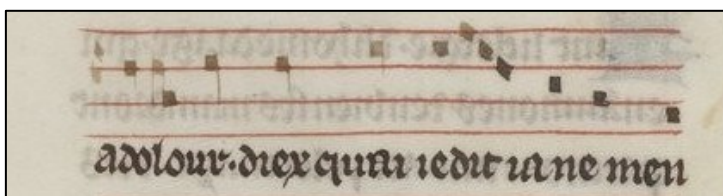 adolour. diex quai ie dit ia ne men